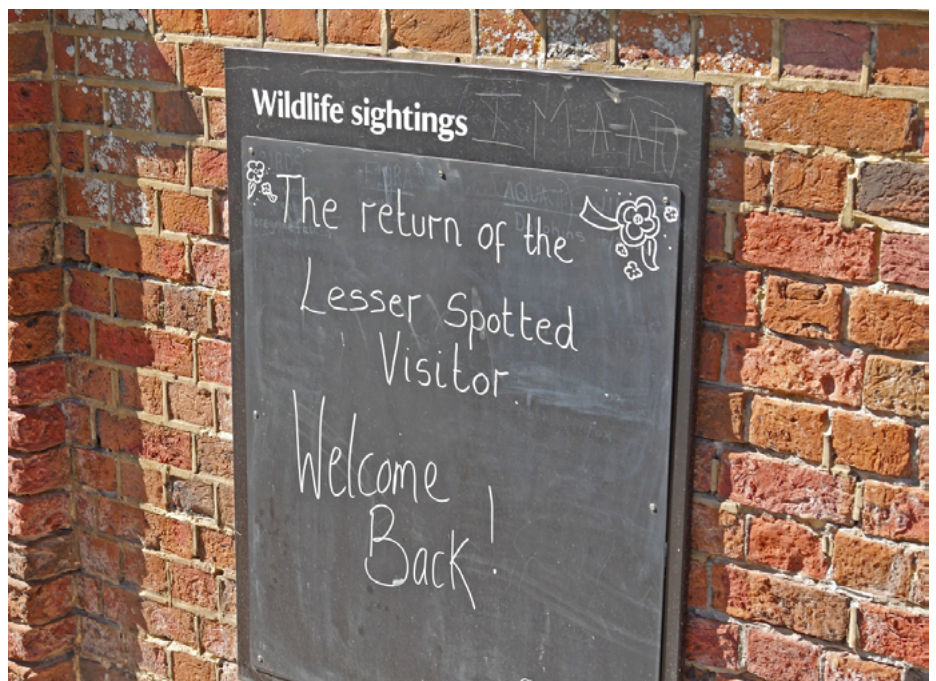 Wildlife sightings
IMAAD
The return of the
Lesser Spotted
Visitor
Welcome
Back!